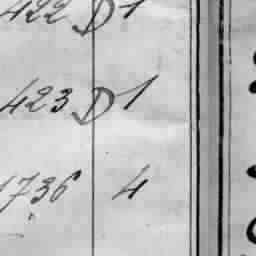 422 D 1
423 D 1
1736 4